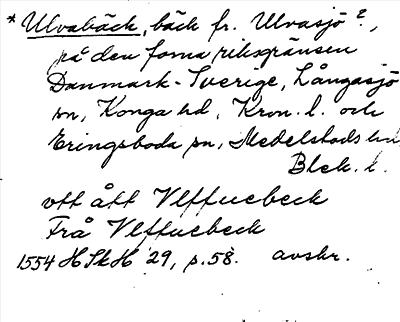 * Ulvabäck, bäck fr. Ulvasjö?,
på den forna riksgränsen
Danmark-Sverige, Långasjö
sn, Konga hd, Kron. l. och
Eringsboda sn, Medelstads hd,
Blek. l.
vtt ått Vlffuebeck
Från Vlffuebeck
1554 HSkH 29, p.58. avskr.